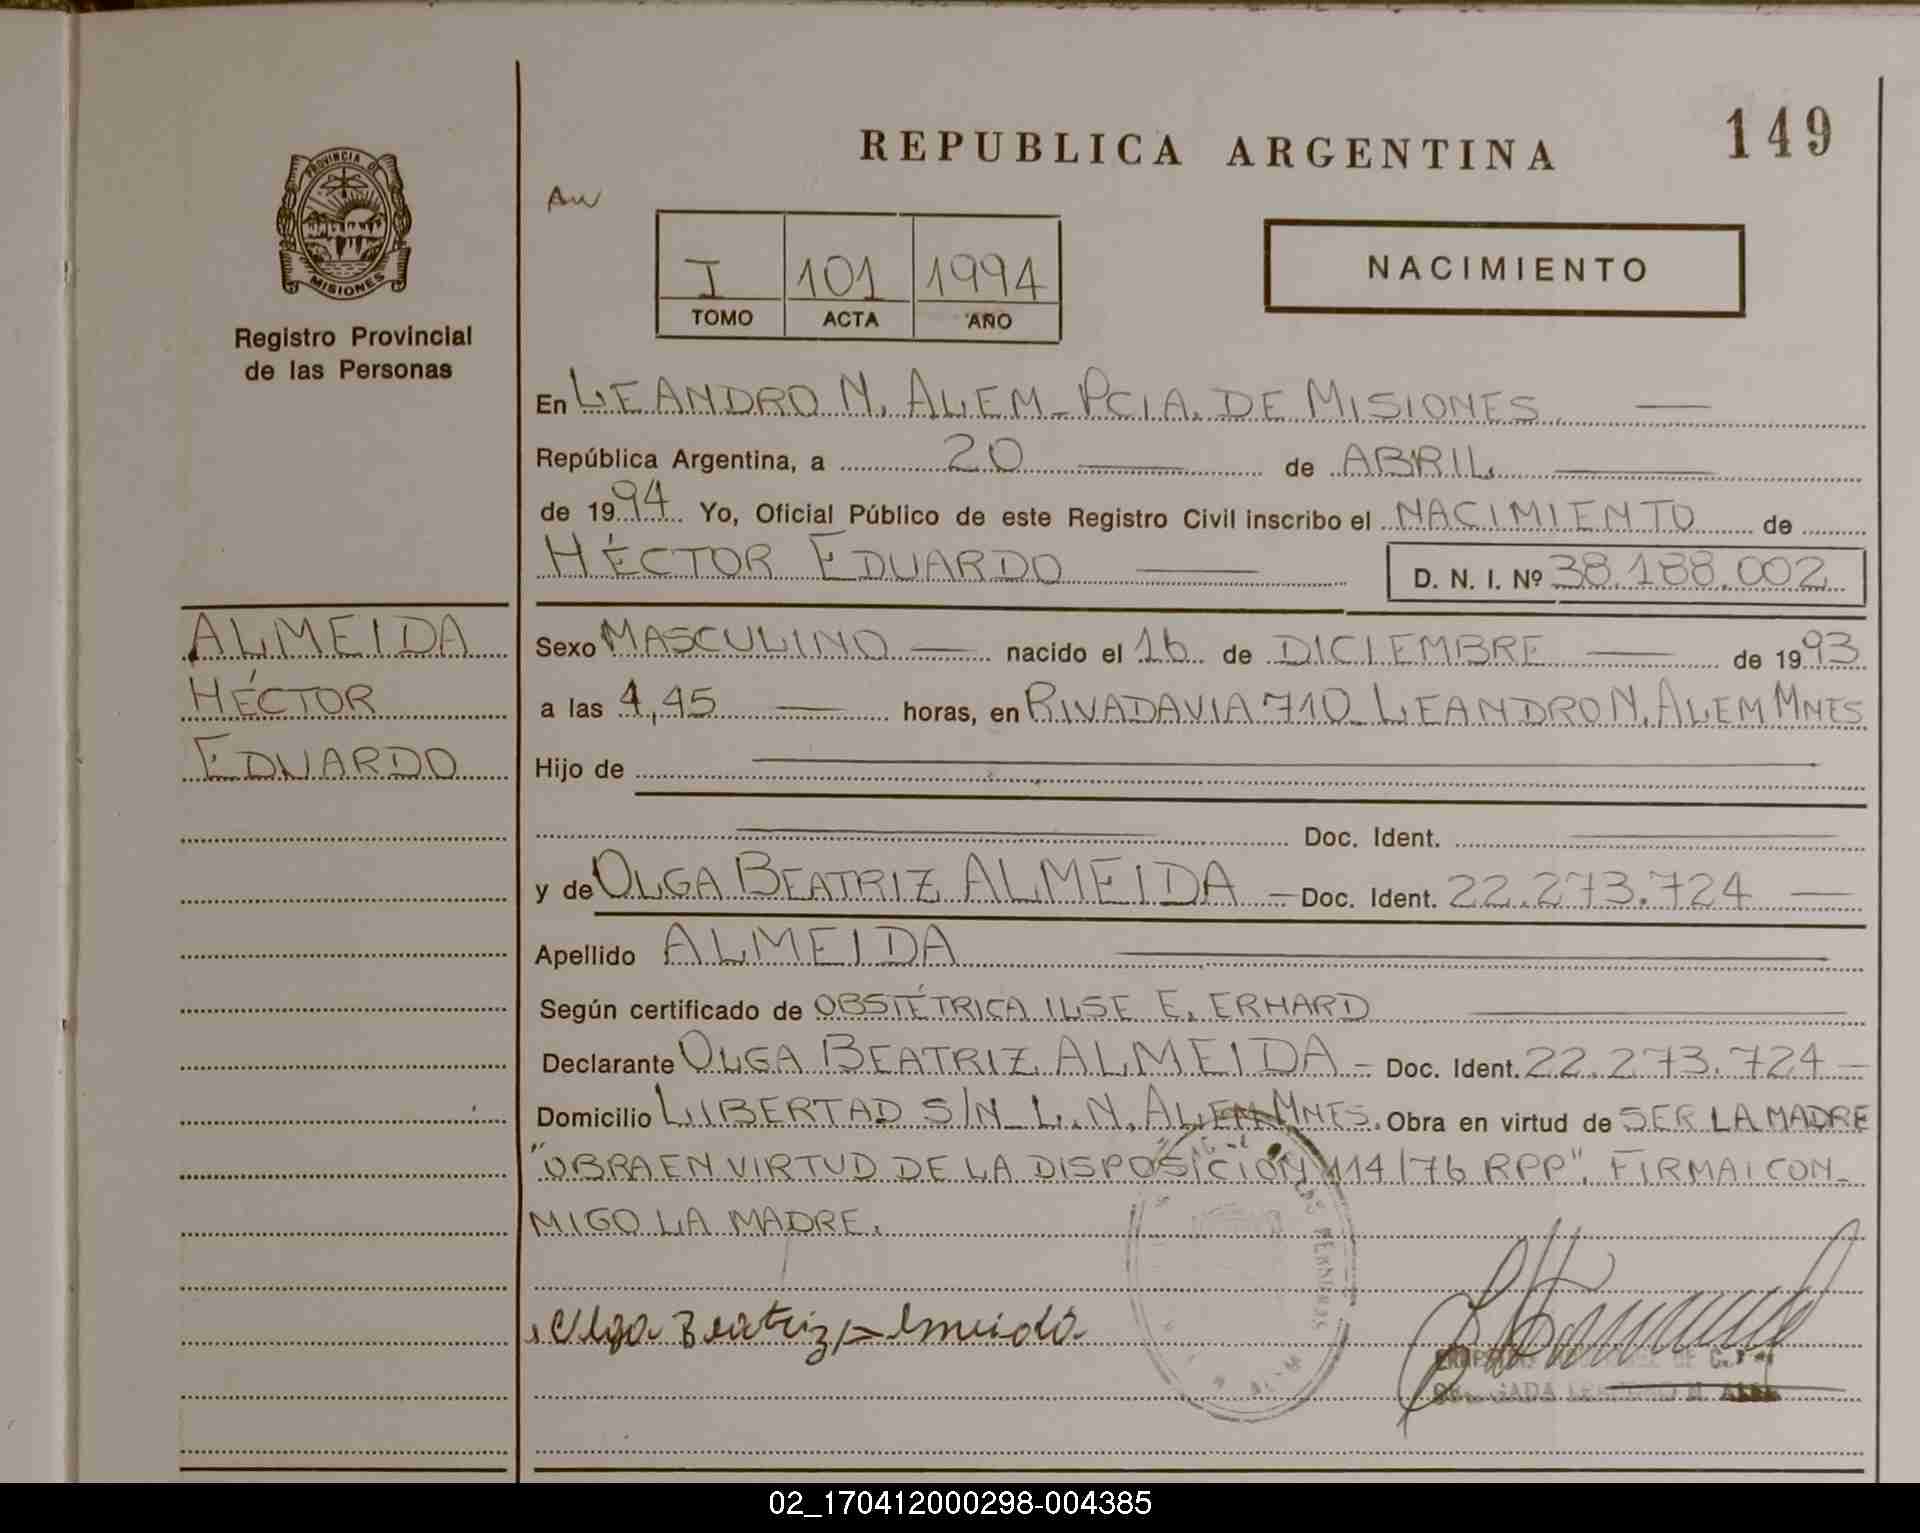 REPUBLICA ARGENTINA
149
PROVINCIA DE
MISIONES
Registro Provincial
de las Personas
I 101 1994
TOMO ACTA AÑO
NACIMIENTO
En LEANDRO N. ALEM - PCIA. DE MISIONES.
República Argentina, a 20 de ABRIL
de 1994 Yo, Oficial Público de este Registro Civil inscribo el NACIMIENTO de
HÉCTOR EDUARDO D. N. I. Nº 38.188.002
ALMEIDA
HÉCTOR
EDUARDO
Sexo MASCULINO nacido el 16 de DICIEMBRE de 1993
a las 4,45 horas, en RIVADAVIA 710 - LEANDRO N. ALEM MNES
Hijo de
Doc. Ident.
y de OLGA BEATRIZ ALMEIDA - Doc. Ident. 22.273.724
Apellido ALMEIDA
Según certificado de OBSTÉTRICA ILSE E. ERHARD
Declarante OLGA BEATRIZ ALMEIDA - Doc. Ident. 22.273.724 -
Domicilio LIBERTAD S/N - L. N. ALEM MNES. Obra en virtud de SER LA MADRE
"OBRA EN VIRTUD DE LA DISPOSICIÓN 114/76 RPP". FIRMA CON-
MIGO LA MADRE.
Olga Beatriz Almeida
02_170412000298-004385